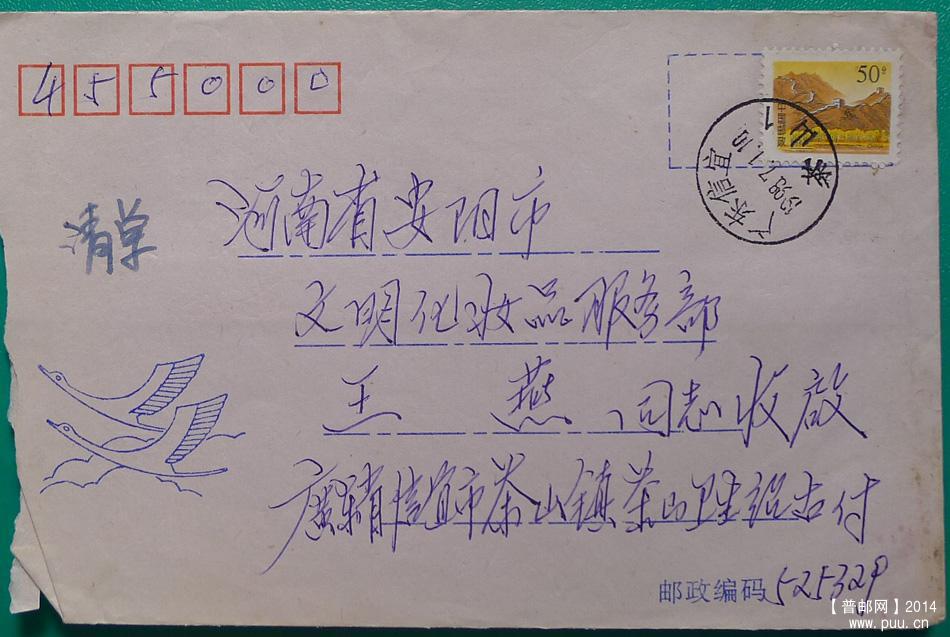 455000
50分
广东信宜
1998.7.1.10
茶山
1
清学
河南省安阳市
文明化妆品服务部
王 燕 同志收启
廣東省信宜市茶山镇茶山卫生站古付
邮政编码 525329
【普邮网】2014
www.puu.cn